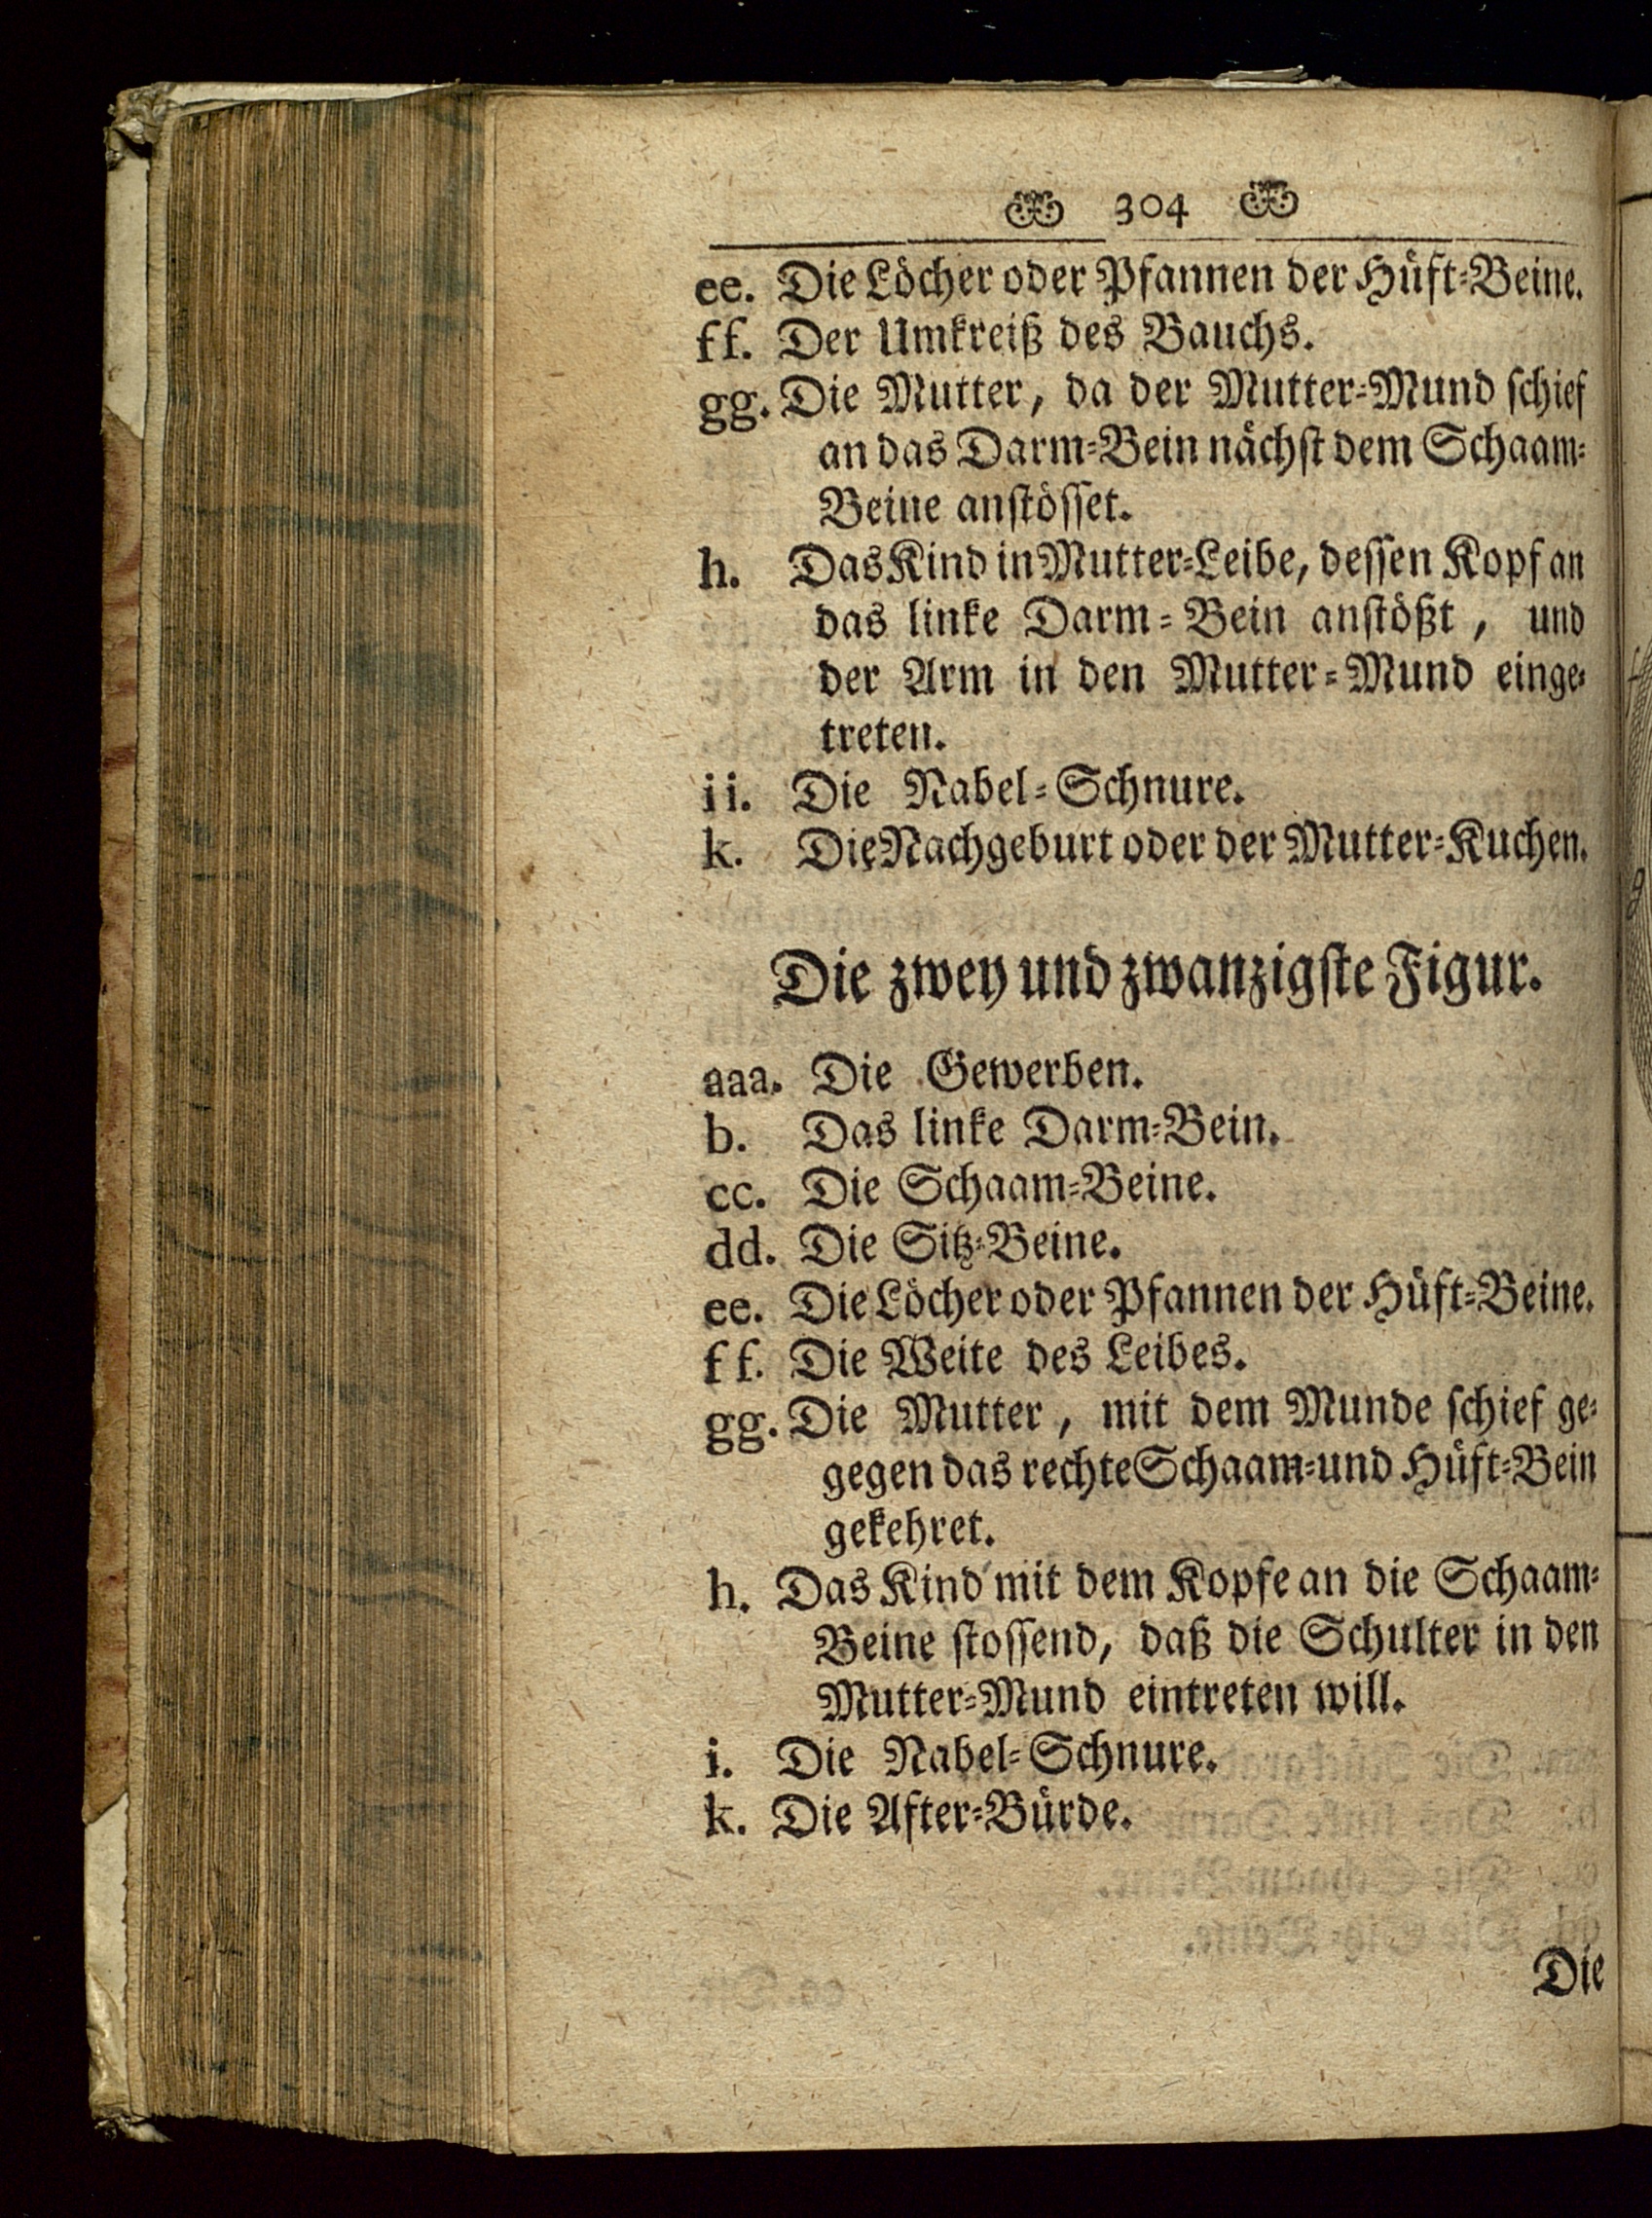 304
ee. Die Löcher oder Pfannen der Hüft-Beine.
ff. Der Umkreiß des Bauchs.
gg. Die Mutter, da der Mutter-Mund schief
an das Darm-Bein nächst dem Schaam-
Beine anstösset.
h. Das Kind in Mutter-Leibe, dessen Kopf an
das linke Darm-Bein anstößt, und
der Arm in den Mutter-Mund einge-
treten.
ii. Die Nabel-Schnure.
k. Die Nachgeburt oder der Mutter-Kuchen.
Die zwey und zwanzigste Figur.
aaa. Die Gewerben.
b. Das linke Darm-Bein.
cc. Die Schaam-Beine.
dd. Die Sitz-Beine.
ee. Die Löcher oder Pfannen der Hüft-Beine.
ff. Die Weite des Leibes.
gg. Die Mutter, mit dem Munde schief ge-
gegen das rechte Schaam-und Hüft-Bein
gekehret.
h. Das Kind mit dem Kopfe an die Schaam-
Beine stossend, daß die Schulter in den
Mutter-Mund eintreten will.
i. Die Nabel-Schnure.
k. Die After-Bürde.
Die